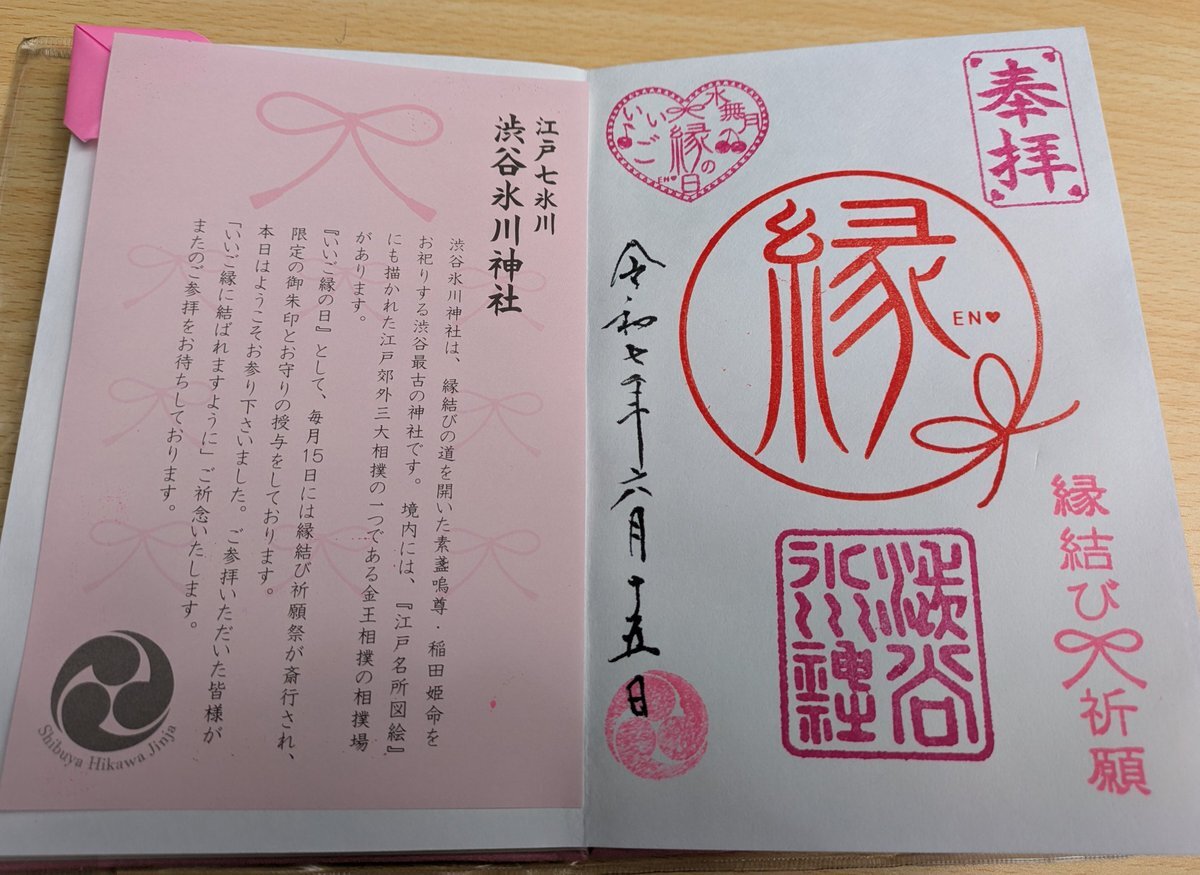 奉拝
縁
EN♥
縁結び祈願
渋谷
氷川神社
水無月
いいご
縁の日
EN♥
令和七年六月十五日
江戸七氷川
渋谷氷川神社
渋谷氷川神社は、縁結びの道を開いた素盞嗚尊・稲田姫命を
お祀りする渋谷最古の神社です。境内には、『江戸名所図絵』
にも描かれた江戸郊外三大相撲の一つである金王相撲の相撲場
があります。
『いいご縁の日』として、毎月15日には縁結び祈願祭が斎行され、
限定の御朱印とお守りの授与をしております。
本日はようこそお参り下さいました。ご参拝いただいた皆様が
「いいご縁に結ばれますように」ご祈念いたします。
またのご参拝をお待ちしております。
Shibuya Hikawa Jinja